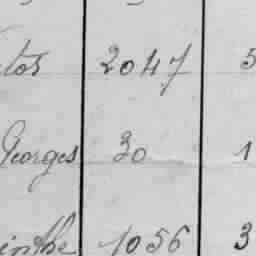 tos 2047 5
Georges 30 1
inthe 1056 3